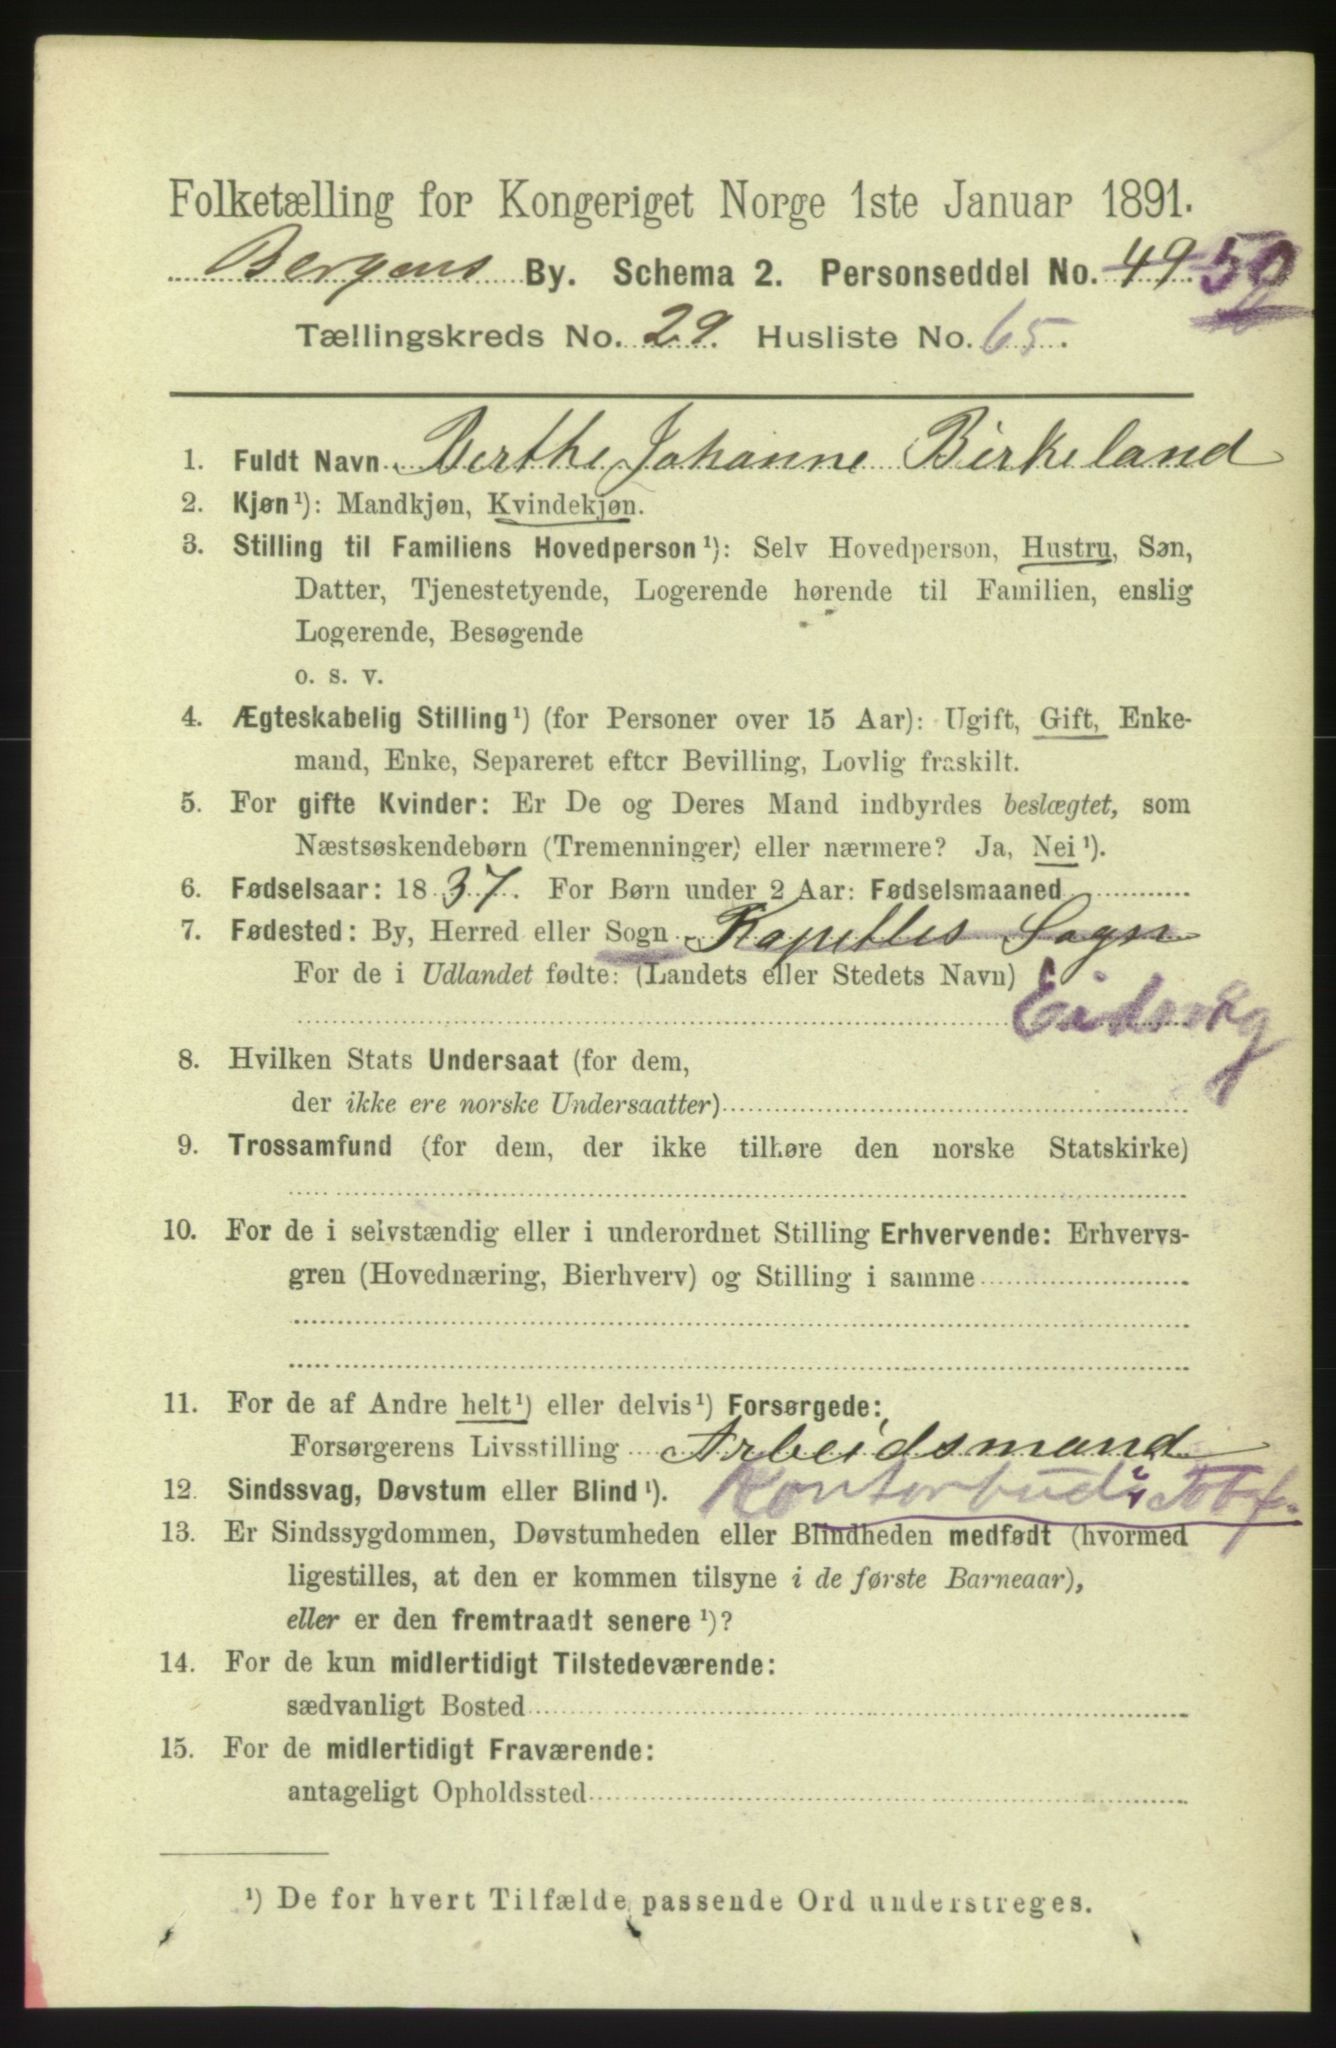 Folketælling for Kongeriget Norge 1ste Januar 1891.
Bergens By. Schema 2. Personseddel No. 49 50
Tællingskreds No. 29. Husliste No. 65.
1. Fuldt Navn Berthe Johanne Birkeland
2. Kjøn¹): Mandkjøn, Kvindekjøn.
3. Stilling til Familiens Hovedperson¹): Selv Hovedperson, Hustru, Søn,
Datter, Tjenestetyende, Logerende hørende til Familien, enslig
Logerende, Besøgende
o. s. v.
4. Ægteskabelig Stilling¹) (for Personer over 15 Aar): Ugift, Gift, Enke-
mand, Enke, Separeret efter Bevilling, Lovlig fraskilt.
5. For gifte Kvinder: Er De og Deres Mand indbyrdes beslægtet, som
Næstsøskendebørn (Tremenninger) eller nærmere? Ja, Nei¹).
6. Fødselsaar: 1837. For Børn under 2 Aar: Fødselsmaaned
7. Fødested: By, Herred eller Sogn Kapelles Sogn
For de i Udlandet fødte: (Landets eller Stedets Navn)
Eidsvåg
8. Hvilken Stats Undersaat (for dem,
der ikke ere norske Undersaatter)
9. Trossamfund (for dem, der ikke tilhøre den norske Statskirke)
10. For de i selvstændig eller i underordnet Stilling Erhvervende: Erhvervs-
gren (Hovednæring, Bierhverv) og Stilling i samme
11. For de af Andre helt¹) eller delvis¹) Forsørgede:
Forsørgerens Livsstilling Arbeidsmand
12. Sindssvag, Døvstum eller Blind¹). Kontorbud i
13. Er Sindssygdommen, Døvstumheden eller Blindheden medfødt (hvormed
ligestilles, at den er kommen tilsyne i de første Barneaar),
eller er den fremtraadt senere¹)?
14. For de kun midlertidigt Tilstedeværende:
sædvanligt Bosted
15. For de midlertidigt Fraværende:
antageligt Opholdssted
¹) De for hvert Tilfælde passende Ord understreges.